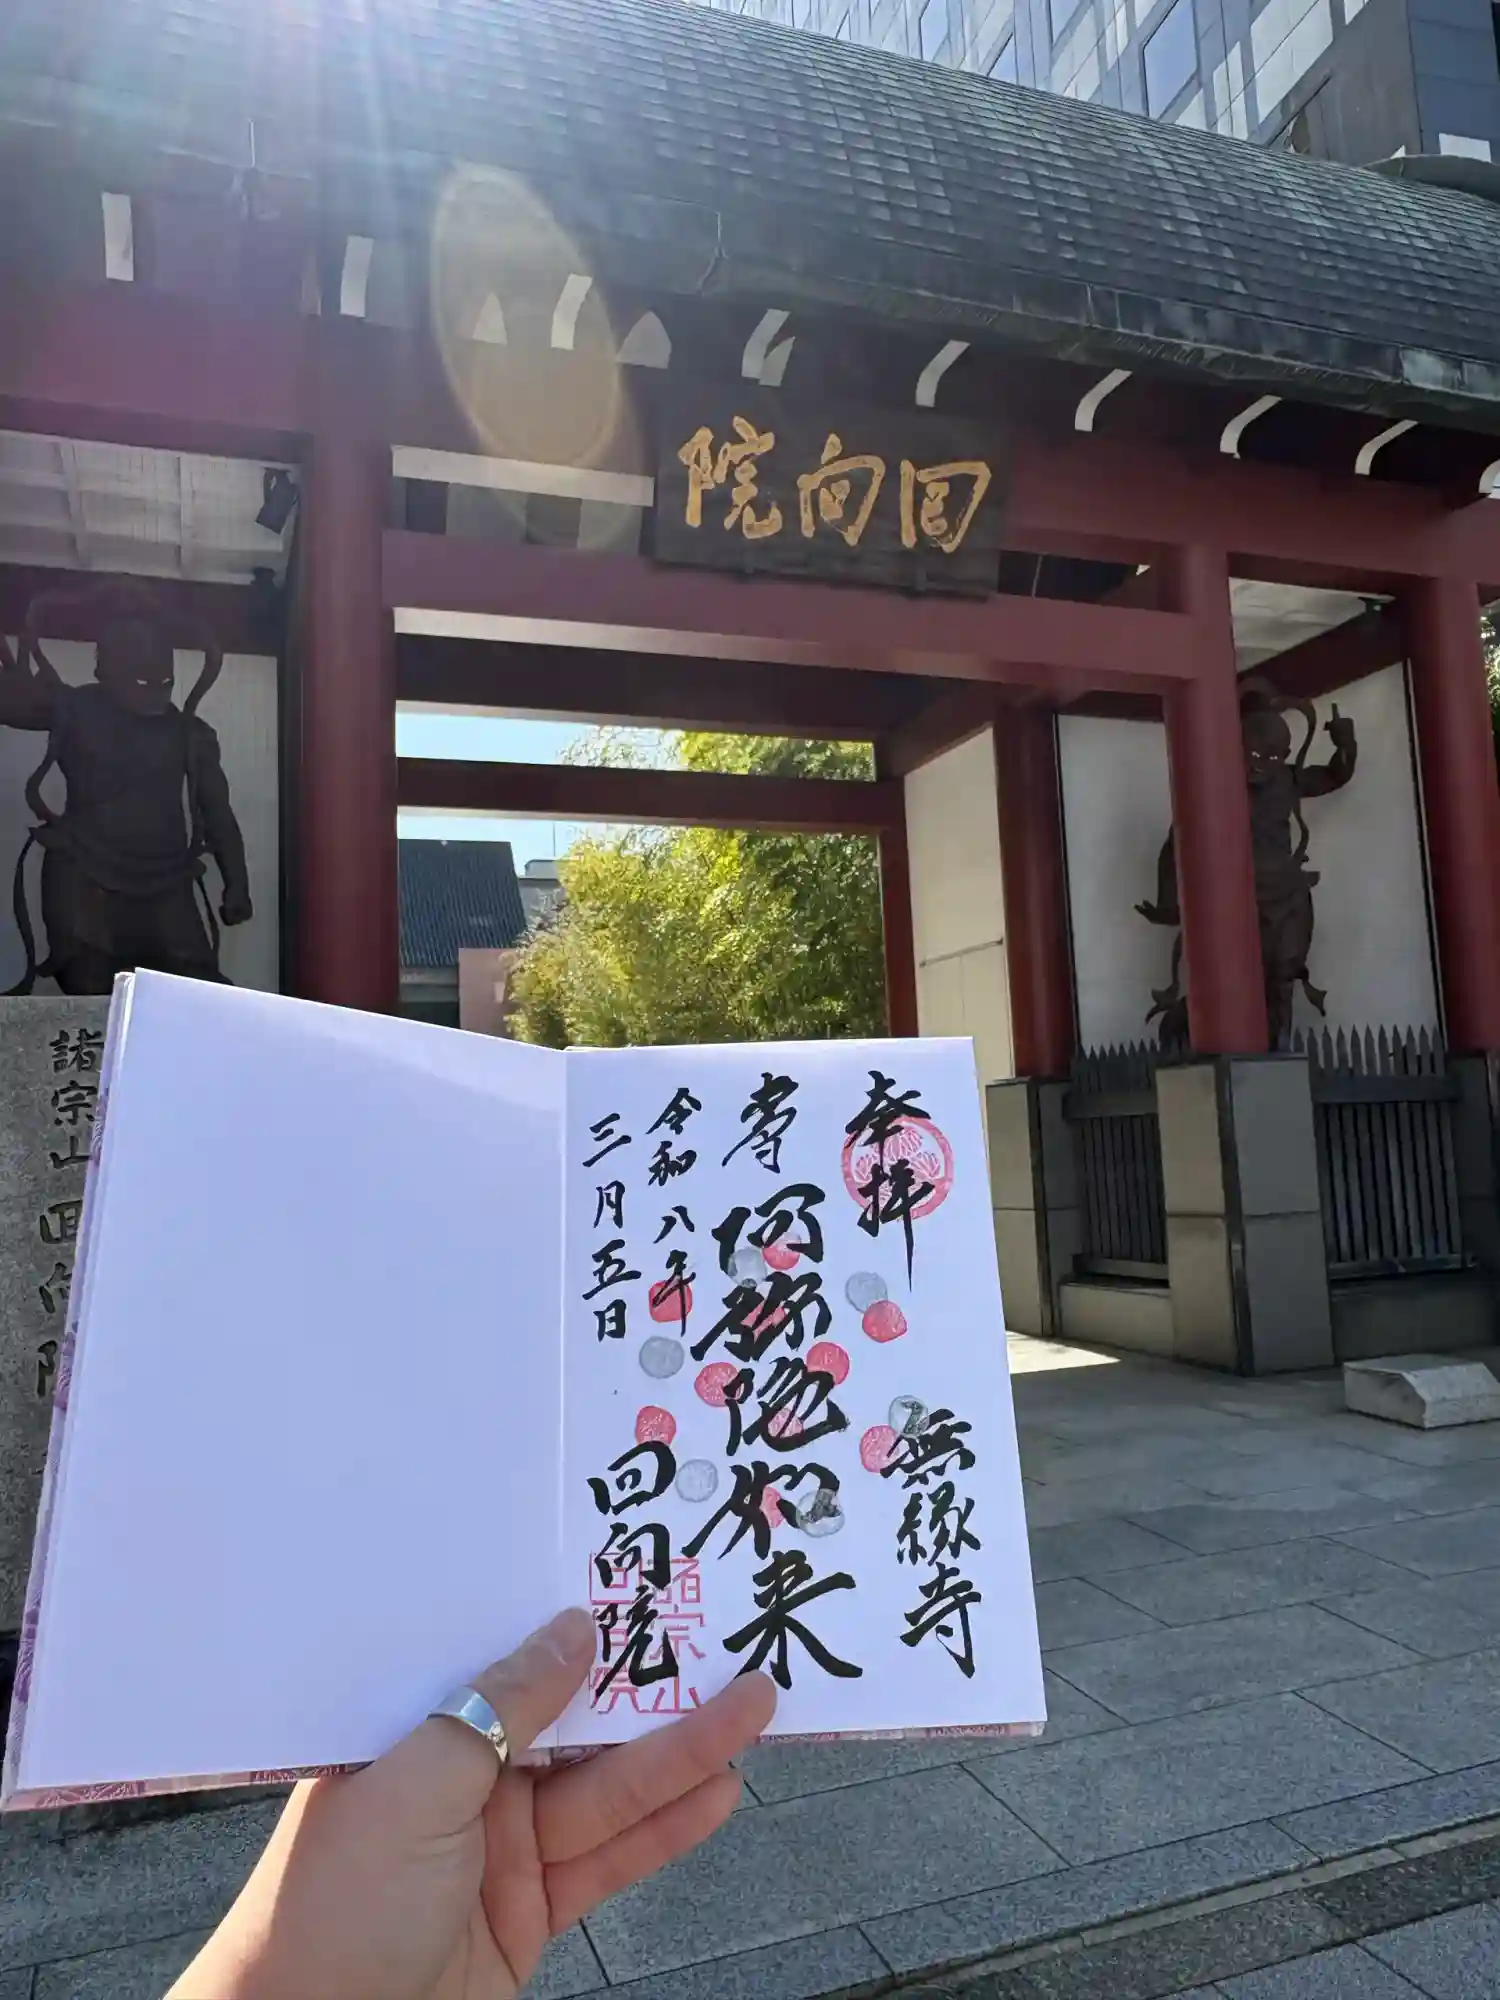 回向院
諸宗山回向院
奉拝
無縁寺
尊
阿弥陀如来
令和八年
三月五日
回向院
諸宗山
回向院